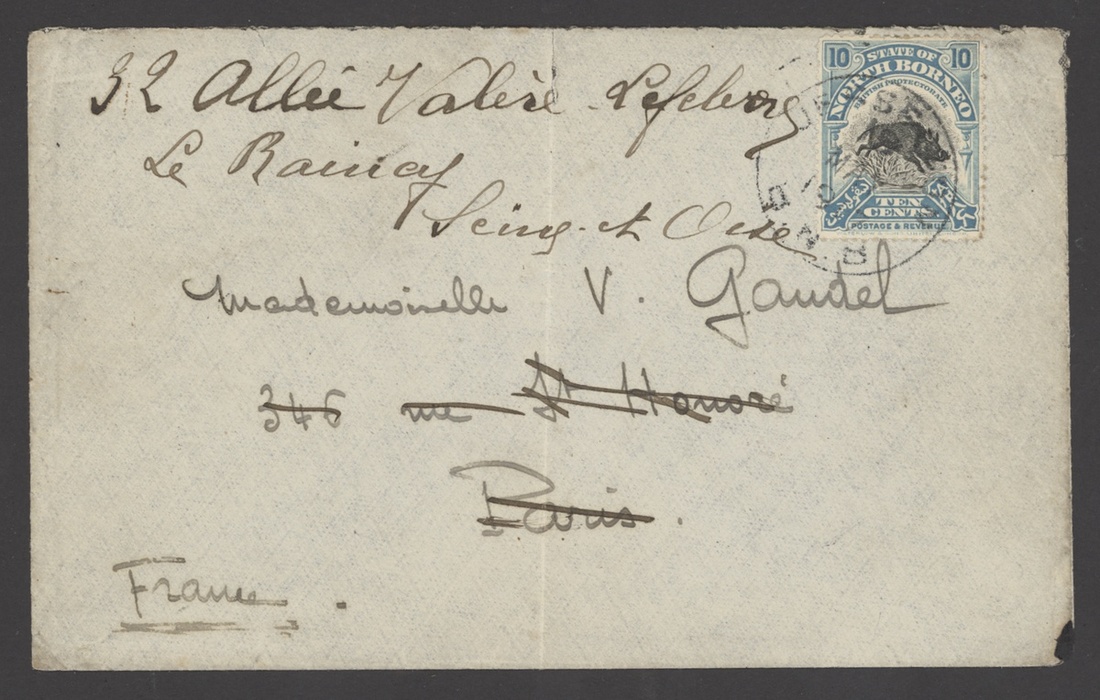 32 Allée Valère Lefebvre
Le Raincy
Seine et Oise
Mademoiselle V. Gaudel
346 rue St Honoré
Paris.
France.
10 10
STATE OF
NORTH BORNEO
BRITISH PROTECTORATE
TEN
CENTS
POSTAGE & REVENUE